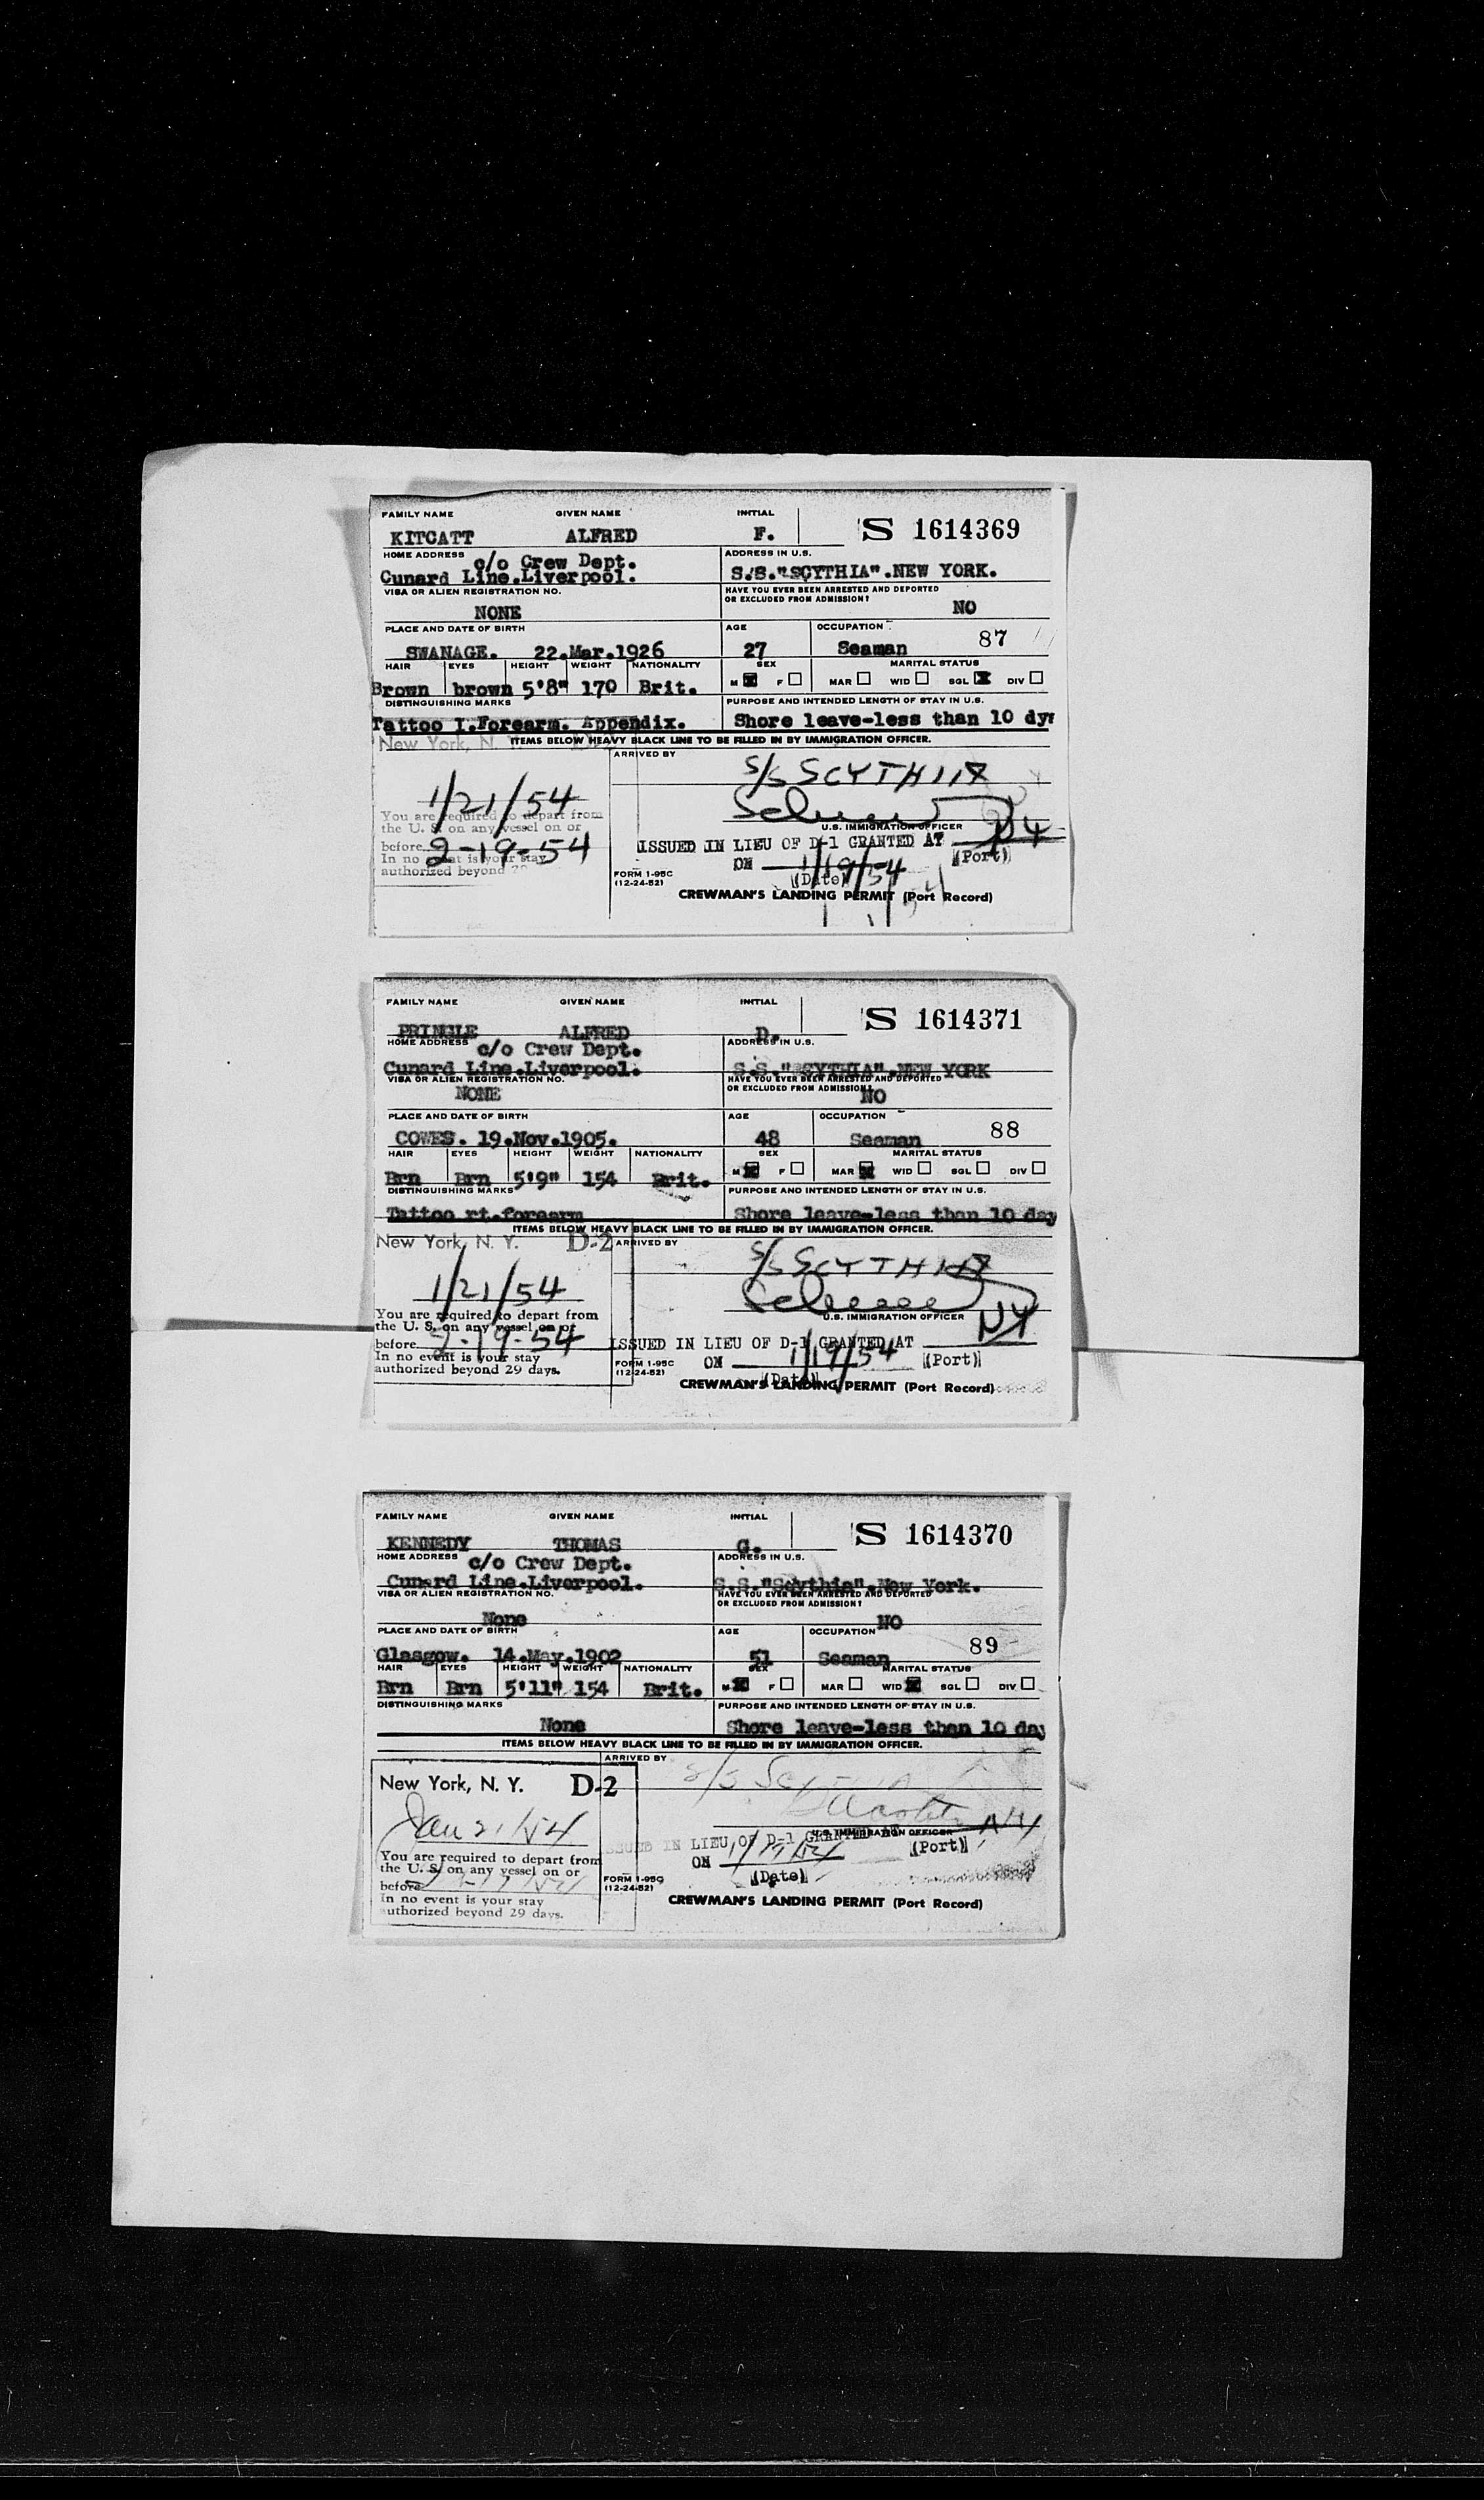 FAMILY NAME GIVEN NAME INITIAL S 1614369
KITCATT ALFRED F.
HOME ADDRESS c/o Crew Dept. ADDRESS IN U.S.
Cunard Line.Liverpool. S.S."SCYTHIA".NEW YORK.
VISA OR ALIEN REGISTRATION NO. HAVE YOU EVER BEEN ARRESTED AND DEPORTED
OR EXCLUDED FROM ADMISSION?
NONE NO
PLACE AND DATE OF BIRTH AGE OCCUPATION
SWANAGE. 22.Mar.1926 27 Seaman 87
HAIR EYES HEIGHT WEIGHT NATIONALITY SEX MARITAL STATUS
Brown brown 5'8" 170 Brit. M F MAR WID SGL DIV
DISTINGUISHING MARKS PURPOSE AND INTENDED LENGTH OF STAY IN U.S.
Tattoo I.Forearm. Appendix. Shore leave-less than 10 dys
New York, N. ITEMS BELOW HEAVY BLACK LINE TO BE FILLED IN BY IMMIGRATION OFFICER.
ARRIVED BY
S/S SCYTHIA
1/21/54
You are required to depart from
the U. S. on any vessel on or
before 2-19-54
In no event is your stay
authorized beyond 29
U.S. IMMIGRATION OFFICER
ISSUED IN LIEU OF D-1 GRANTED AT NY
(Port)
ON 1/19/54
(Date)
FORM 1-95C
(12-24-52)
CREWMAN'S LANDING PERMIT (Port Record)
FAMILY NAME GIVEN NAME INITIAL S 1614371
PRINGLE ALFRED D.
HOME ADDRESS c/o Crew Dept. ADDRESS IN U.S.
Cunard Line.Liverpool. S.S."SCYTHIA".NEW YORK
VISA OR ALIEN REGISTRATION NO. HAVE YOU EVER BEEN ARRESTED AND DEPORTED
OR EXCLUDED FROM ADMISSION?
NONE NO
PLACE AND DATE OF BIRTH AGE OCCUPATION
COWES. 19.Nov.1905. 48 Seaman 88
HAIR EYES HEIGHT WEIGHT NATIONALITY SEX MARITAL STATUS
Brn Brn 5'9" 154 Brit. M F MAR WID SGL DIV
DISTINGUISHING MARKS PURPOSE AND INTENDED LENGTH OF STAY IN U.S.
Tattoo rt.forearm Shore leave-less than 10 day
ITEMS BELOW HEAVY BLACK LINE TO BE FILLED IN BY IMMIGRATION OFFICER.
New York, N. Y. D-2 ARRIVED BY
S/S SCYTHIA
1/21/54
You are required to depart from
the U. S. on any vessel on or
before 2-19-54
In no event is your stay
authorized beyond 29 days.
U.S. IMMIGRATION OFFICER
ISSUED IN LIEU OF D-1 GRANTED AT NY
ON 1/19/54 (Port)
(Date)
FORM 1-95C
(12-24-52)
CREWMAN'S LANDING PERMIT (Port Record)
FAMILY NAME GIVEN NAME INITIAL S 1614370
KENNEDY THOMAS G.
HOME ADDRESS c/o Crew Dept. ADDRESS IN U.S.
Cunard Line.Liverpool. S.S."Scythia".New York.
VISA OR ALIEN REGISTRATION NO. HAVE YOU EVER BEEN ARRESTED AND DEPORTED
OR EXCLUDED FROM ADMISSION?
None NO
PLACE AND DATE OF BIRTH AGE OCCUPATION
Glasgow. 14.May.1902 51 Seaman 89
HAIR EYES HEIGHT WEIGHT NATIONALITY SEX MARITAL STATUS
Brn Brn 5'11" 154 Brit. M F MAR WID SGL DIV
DISTINGUISHING MARKS PURPOSE AND INTENDED LENGTH OF STAY IN U.S.
None Shore leave-less than 10 day
ITEMS BELOW HEAVY BLACK LINE TO BE FILLED IN BY IMMIGRATION OFFICER.
ARRIVED BY
New York, N. Y. D-2 S/S
Jan 21/54
You are required to depart from
the U. S. on any vessel on or
before
In no event is your stay
authorized beyond 29 days.
U.S. IMMIGRATION OFFICER
ISSUED IN LIEU OF D-1 GRANTED AT NY
ON 1/19/54 (Port)
(Date)
FORM 1-95C
(12-24-52)
CREWMAN'S LANDING PERMIT (Port Record)